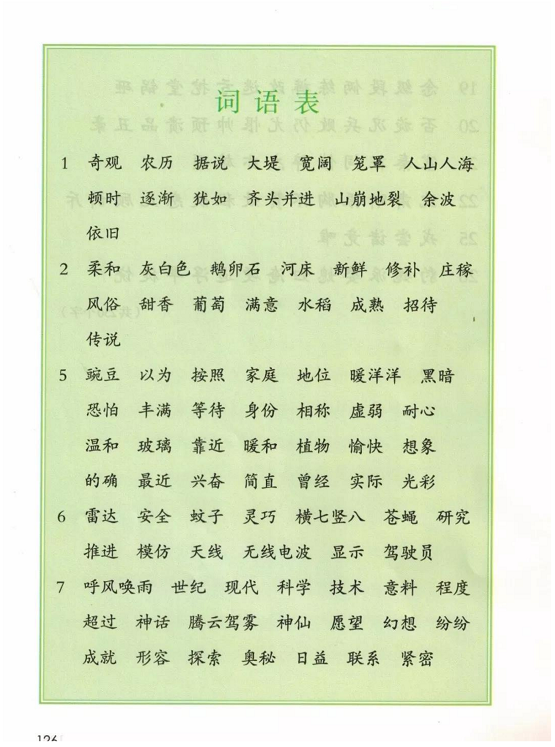 词语表
1 奇观 农历 据说 大堤 宽阔 笼罩 人山人海
顿时 逐渐 犹如 齐头并进 山崩地裂 余波
依旧
2 柔和 灰白色 鹅卵石 河床 新鲜 修补 庄稼
风俗 甜香 葡萄 满意 水稻 成熟 招待
传说
5 豌豆 以为 按照 家庭 地位 暖洋洋 黑暗
恐怕 丰满 等待 身份 相称 虚弱 耐心
温和 玻璃 靠近 暖和 植物 愉快 想象
的确 最近 兴奋 简直 曾经 实际 光彩
6 雷达 安全 蚊子 灵巧 横七竖八 苍蝇 研究
推进 模仿 天线 无线电波 显示 驾驶员
7 呼风唤雨 世纪 现代 科学 技术 意料 程度
超过 神话 腾云驾雾 神仙 愿望 幻想 纷纷
成就 形容 探索 奥秘 日益 联系 紧密
126